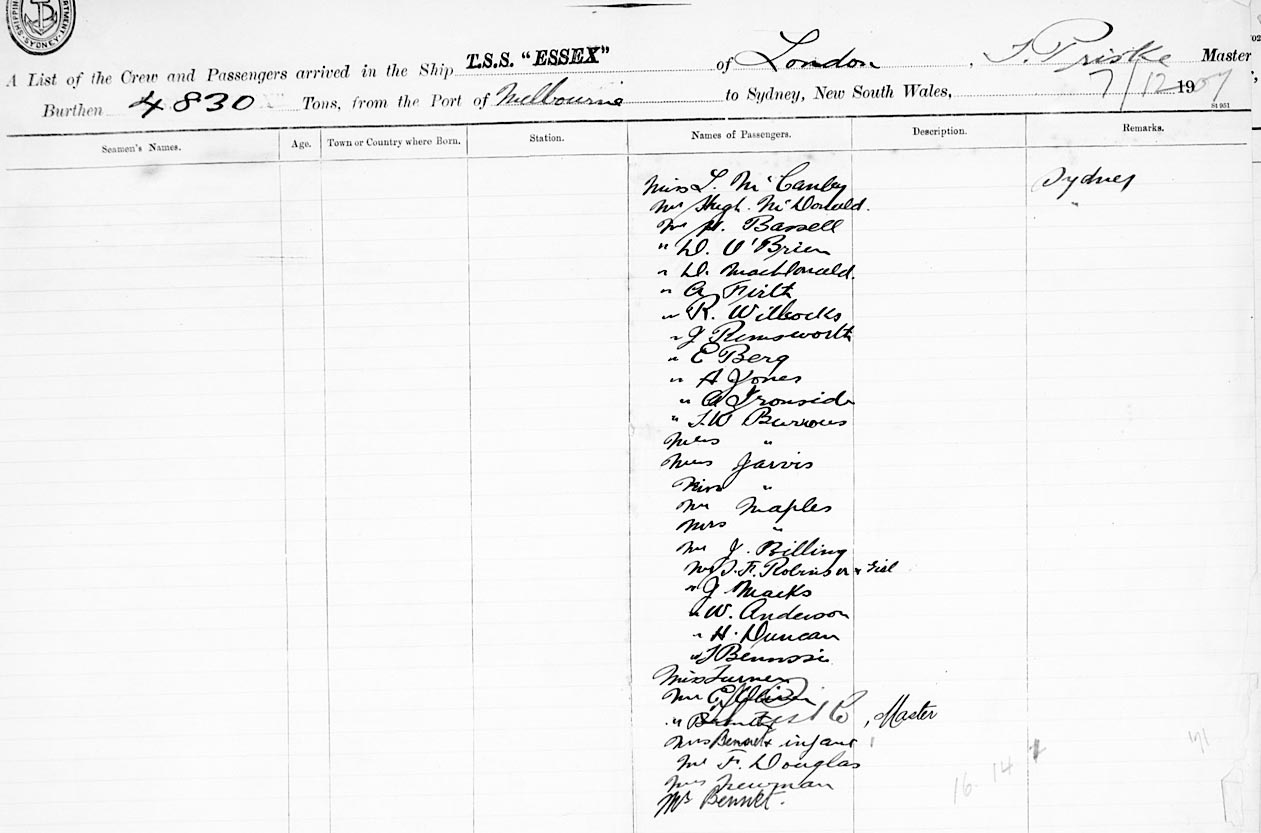 SHIPPING DEPARTMENT. SYDNEY.
A List of the Crew and Passengers arrived in the Ship T.S.S. "ESSEX" of London, Priske Master
Burthen 4830 Tons, from the Port of Melbourne to Sydney, New South Wales, 7/12 1907
S1 951
Seamen's Names. Age. Town or Country where Born. Station. Names of Passengers. Description. Remarks.
Miss L. McCanley Sydney
Mr Hugh McDonald. "
Mr H. Bassell
" D. O'Brien
" D. MacDonald.
" A Firth
" R. Willcocks
" J Rimsworth
" E Berg
" A Jones
" A Ironside
" T.W Burrows
Mrs "
Mrs Jarvis
Miss "
Mr Maples
Mrs "
Mr J. Billing
Mr T. F. Robinson & Girl
" J Macks
" W. Anderson
" H. Duncan
" J
Miss Turner
Mr E
" , Master
Mrs Bennet & infant
Mr F. Douglas
Mrs Newman
Mr Bennet.
16. 14